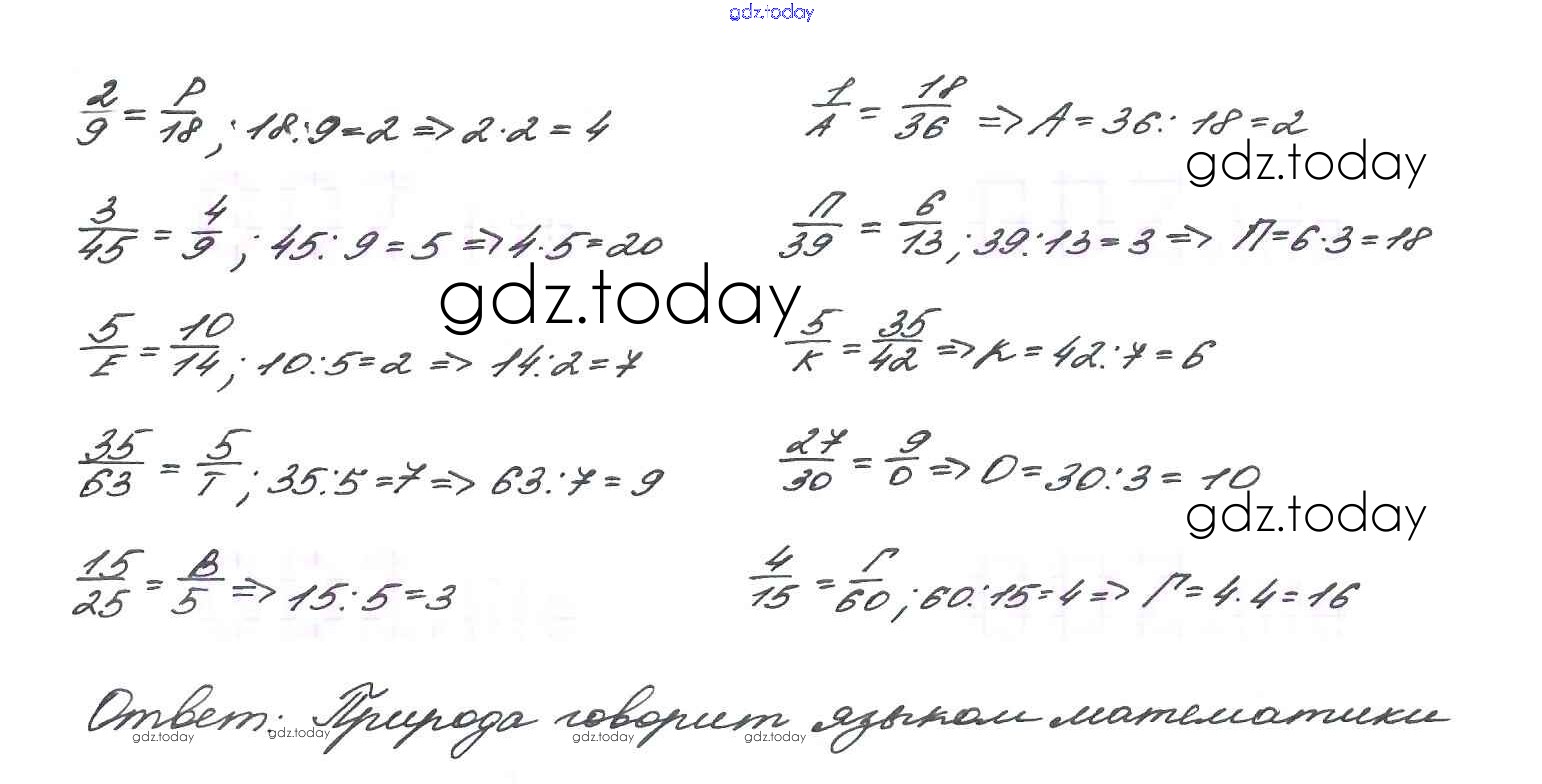 gdz.today
2/9 = Р/18 ; 18:9=2 => 2·2 = 4
1/А = 18/36 => А = 36 : 18 = 2
gdz.today
3/45 = 4/9 ; 45:9 = 5 => 4·5 = 20
П/39 = 6/13 ; 39:13 = 3 => П = 6·3 = 18
gdz.today
5/Е = 10/14 ; 10:5 = 2 => 14:2 = 7
5/К = 35/42 => К = 42:7 = 6
35/63 = 5/Т ; 35:5 = 7 => 63:7 = 9
27/30 = 9/О => О = 30:3 = 10
gdz.today
15/25 = В/5 => 15:5 = 3
4/15 = Г/60 ; 60:15 = 4 => Г = 4·4 = 16
Ответ: Природа говорит языком математики
gdz.today gdz.today gdz.today gdz.today